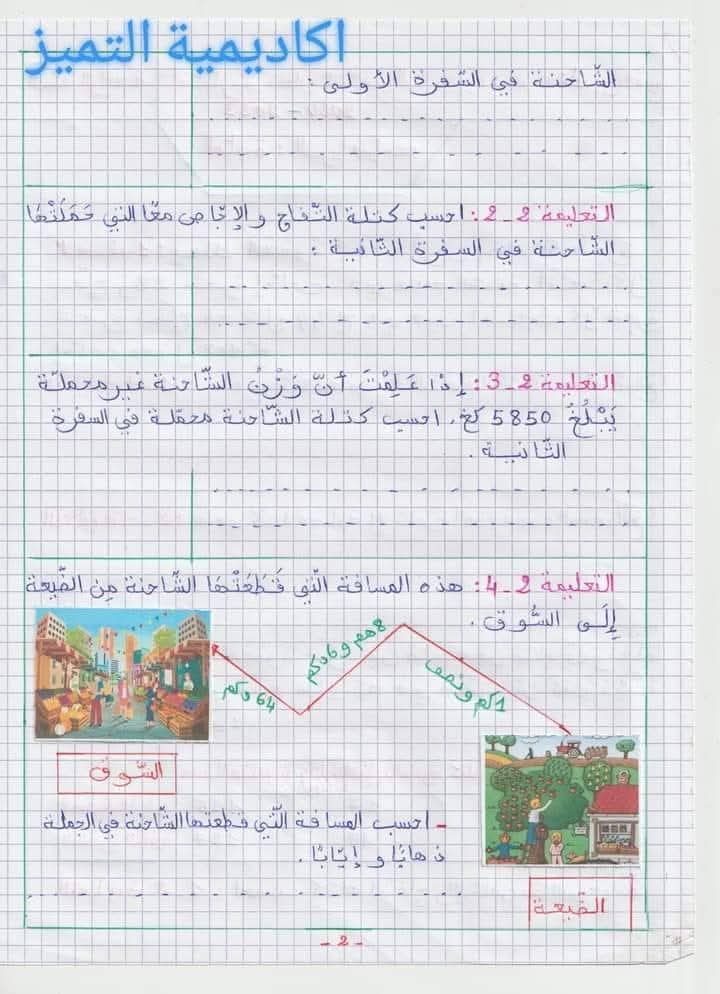 اكاديمية التميز
الشّاحنة في السّفرة الأولى :
التعليمة 2-2: احسب كتلة التّفاح والإجّاص معًا التي حَمَلَتْهَا
الشّاحنة في السفرة الثّانية :
التعليمة 2-3: إِذَا عَلِمْتَ أَنّ وَزْنُ الشّاحنة غير محملة
يَبْلُغُ 5850 كغ. احسب كتلة الشّاحنة محمّلة في السفرة
الثّانية .
التعليمة 2-4: هذه المسافة الّتي قَطَعَتْهَا الشّاحنة مِن الضّيعة
إِلَى السُّوق .
64 دكم
8هم و6دكم
1كم ونصف
السّوق
- احسب المسافة الّتي قطعتها الشّاحنة في الجملة
ذهابًا و إيّابًا .
الضّيعة
- 2 -